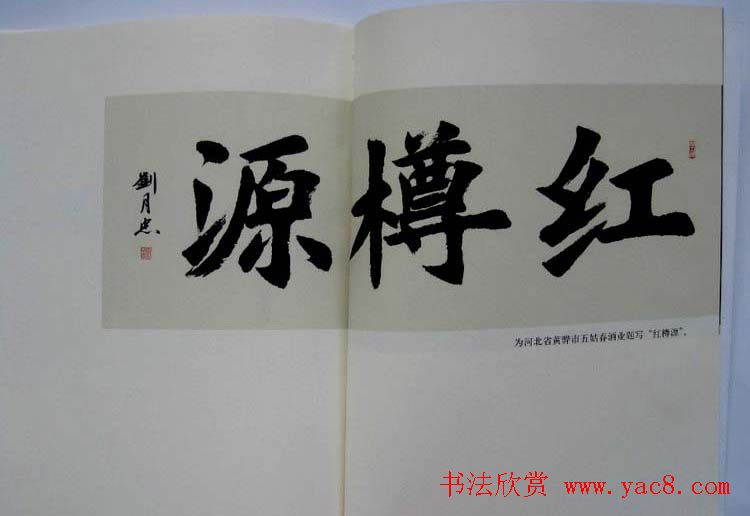 红樽源
劉月忠
为河北省黄骅市五姑春酒业题写“红樽源”。
书法欣赏 www.yac8.com